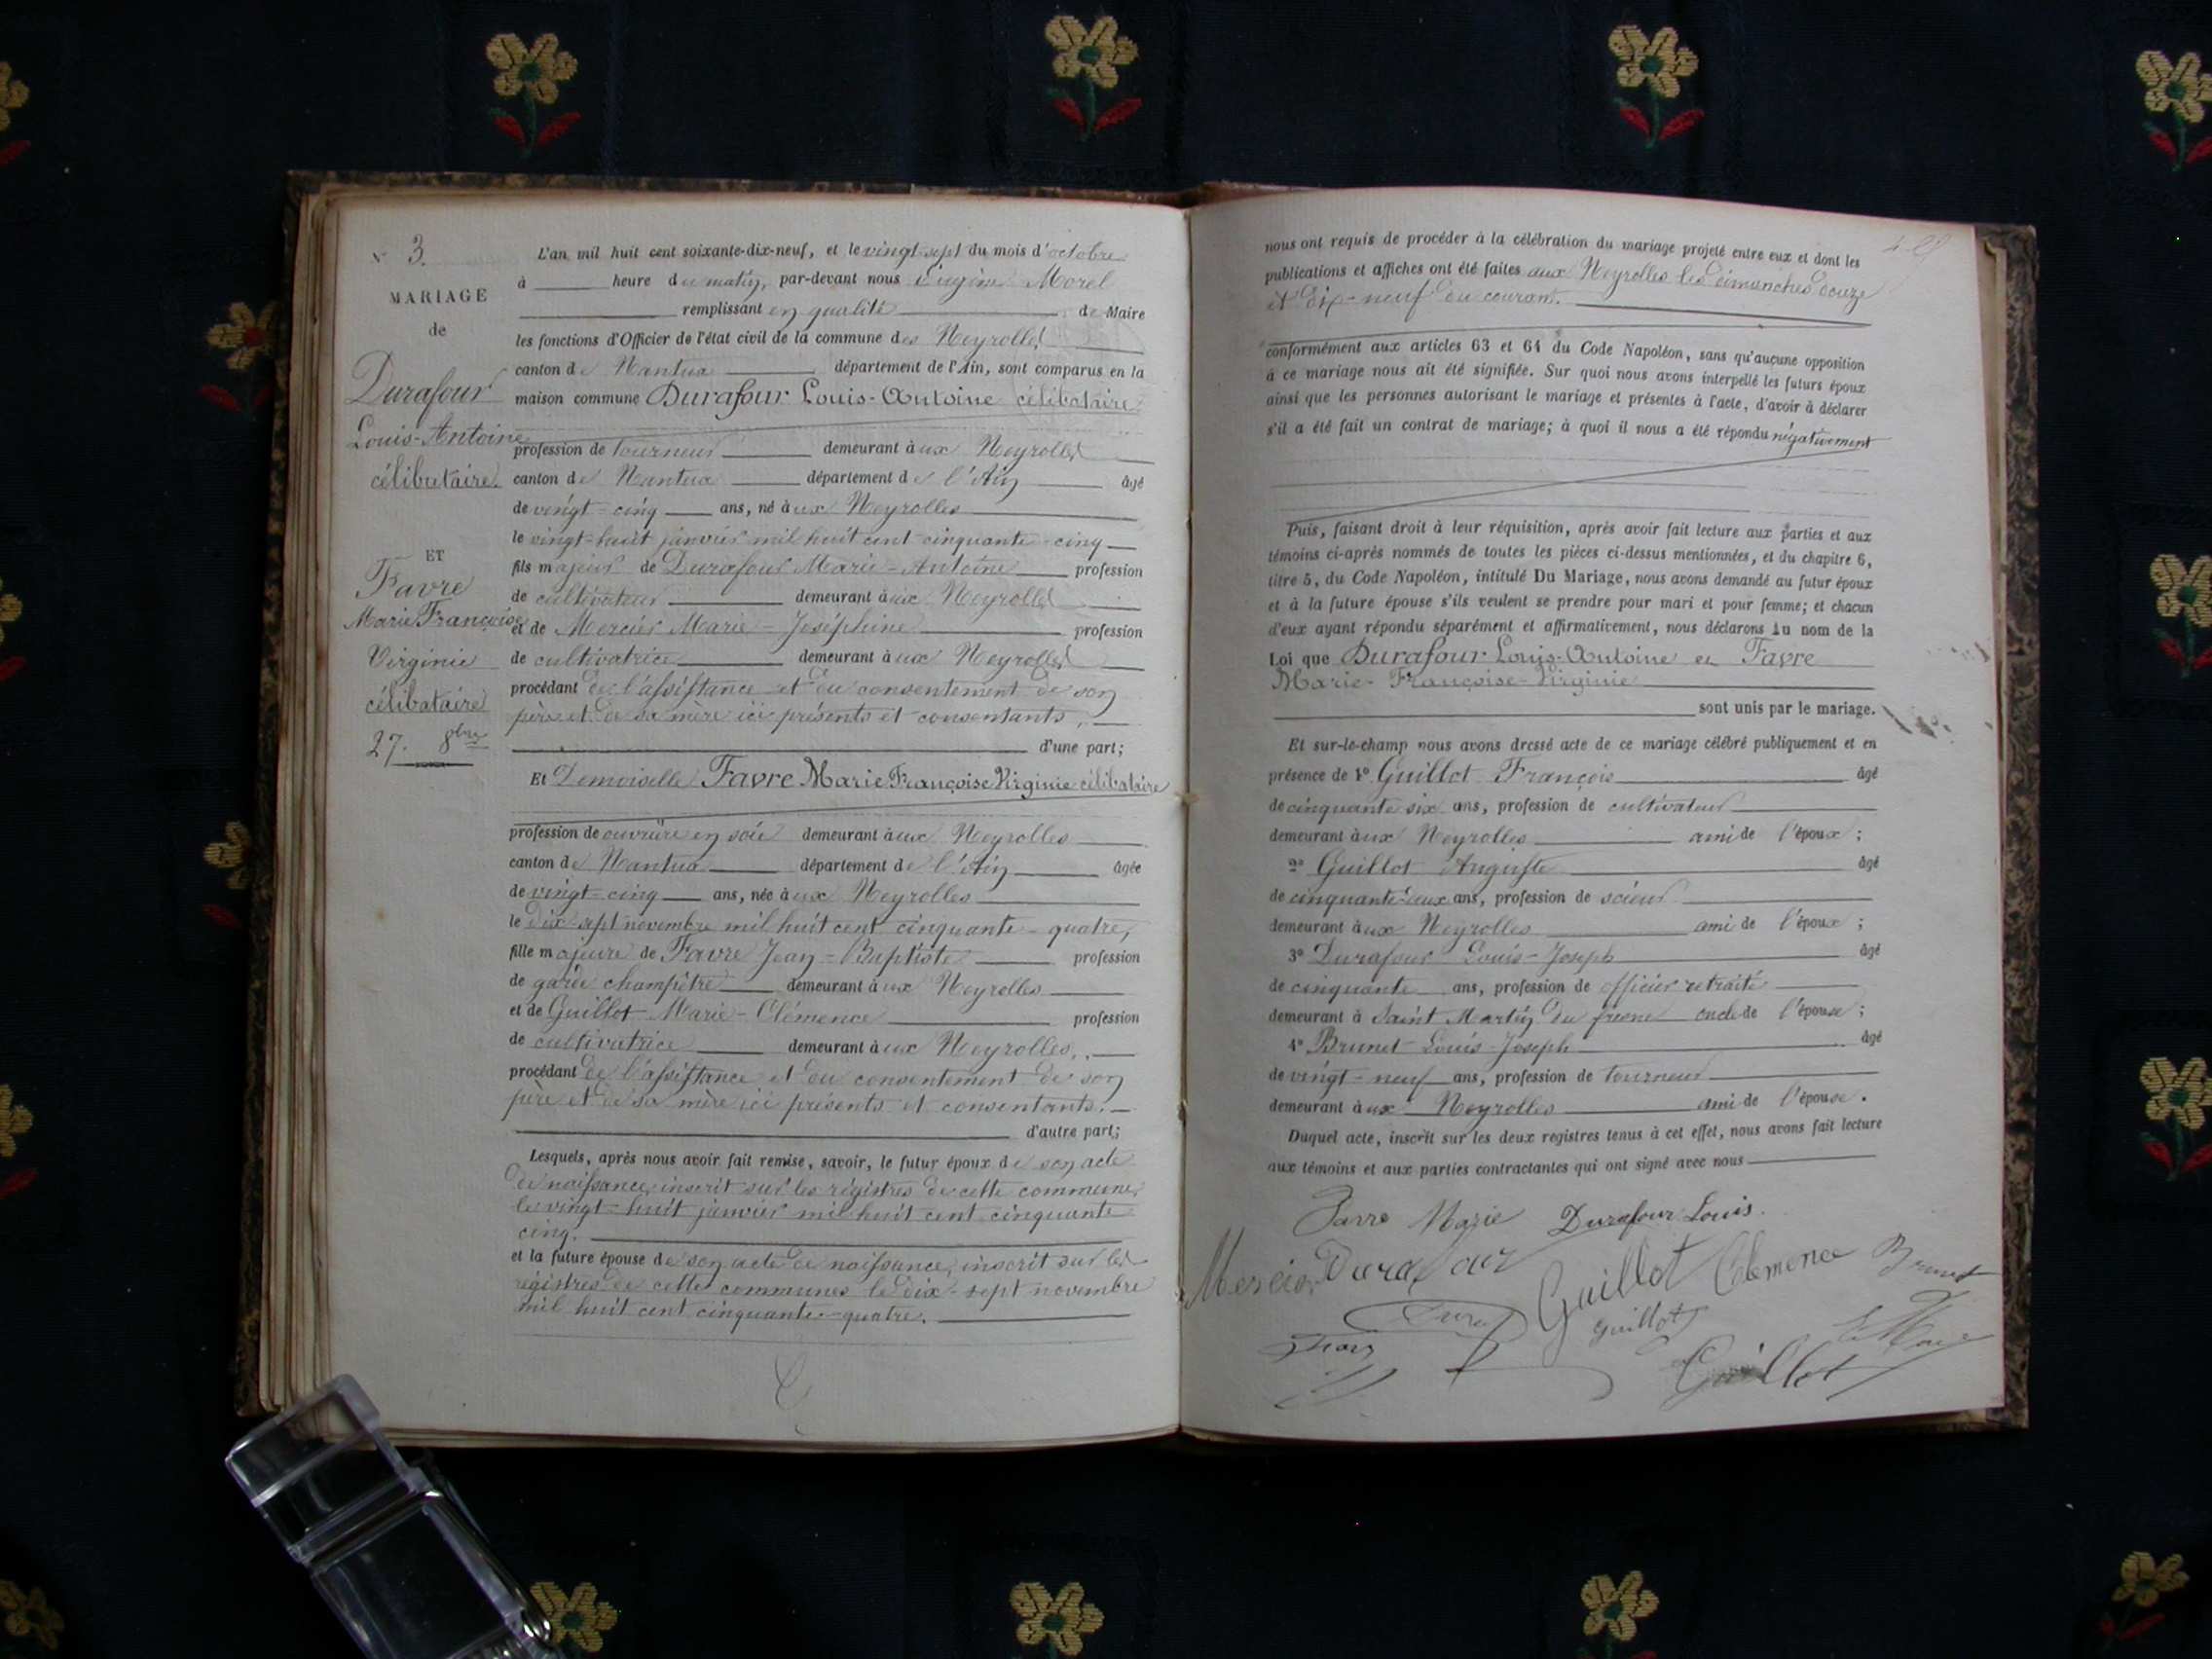 N° 3.
MARIAGE
de
Durafour
Louis-Antoine
célibataire.
ET
Favre
Marie Françoise
Virginie
célibataire
27. 8bre
L'an mil huit cent soixante-dix-neuf, et le vingt-sept du mois d'octobre
à heure du matin, par-devant nous Eugène Morel
remplissant en qualité de Maire
les fonctions d'Officier de l'état civil de la commune des Neyrolles
canton de Nantua département de l'Ain, sont comparus en la
maison commune Durafour Louis-Antoine célibataire
profession de tourneur demeurant à ux Neyrolles
canton de Nantua département de l'Ain âgé
de vingt-cinq ans, né à ux Neyrolles
le vingt-huit janvier mil huit cent cinquante-cinq
fils majeur de Durafour Marie-Antoine profession
de cultivateur demeurant à ux Neyrolles
et de Mercier Marie-Joséphine profession
de cultivatrice demeurant à ux Neyrolles
procédant de l'assistance et du consentement de son
père et de sa mère ici présents et consentants.
d'une part;
Et Demoiselle Favre Marie Françoise Virginie célibataire
profession de ouvrière en soie demeurant à ux Neyrolles
canton de Nantua département de l'Ain âgée
de vingt-cinq ans, née à ux Neyrolles
le dix-sept novembre mil huit cent cinquante-quatre,
fille majeure de Favre Jean-Baptiste profession
de garde champêtre demeurant à ux Neyrolles
et de Guillot Marie-Clémence profession
de cultivatrice demeurant à ux Neyrolles,
procédant de l'assistance et du consentement de son
père et de sa mère ici présents et consentants.
d'autre part;
Lesquels, après nous avoir fait remise, savoir, le futur époux de son acte
de naissance, inscrit sur les régistres de cette commune,
le vingt-huit janvier mil huit cent cinquante
cinq.
et la future épouse de son acte de naissance, inscrit sur les
régistres de cette communes le dix-sept novembre
mil huit cent cinquante-quatre.
nous ont requis de procéder à la célébration du mariage projeté entre eux et dont les
publications et affiches ont été faites aux Neyrolles les dimanches douze
et dix-neuf du courant.
conformément aux articles 63 et 64 du Code Napoléon, sans qu'aucune opposition
à ce mariage nous ait été signifiée. Sur quoi nous avons interpellé les futurs époux
ainsi que les personnes autorisant le mariage et présentes à l'acte, d'avoir à déclarer
s'il a été fait un contrat de mariage; à quoi il nous a été répondu négativement
Puis, faisant droit à leur réquisition, après avoir fait lecture aux parties et aux
témoins ci-après nommés de toutes les pièces ci-dessus mentionnées, et du chapitre 6,
titre 5, du Code Napoléon, intitulé Du Mariage, nous avons demandé au futur époux
et à la future épouse s'ils veulent se prendre pour mari et pour femme; et chacun
d'eux ayant répondu séparément et affirmativement, nous déclarons au nom de la
Loi que Durafour Louis-Antoine et Favre
Marie-Françoise-Virginie
sont unis par le mariage.
Et sur-le-champ nous avons dressé acte de ce mariage célébré publiquement et en
présence de 1° Guillot François âgé
de cinquante six ans, profession de cultivateur
demeurant à ux Neyrolles ami de l'époux;
2° Guillot Auguste âgé
de cinquante-deux ans, profession de scieur
demeurant à ux Neyrolles ami de l'époux;
3° Durafour Louis-Joseph âgé
de cinquante ans, profession de officier retraité
demeurant à Saint Martin du fresne oncle de l'épouse;
4° Brunet Louis-Joseph âgé
de vingt-neuf ans, profession de tourneur
demeurant à ux Neyrolles ami de l'épouse.
Duquel acte, inscrit sur les deux registres tenus à cet effet, nous avons fait lecture
aux témoins et aux parties contractantes qui ont signé avec nous
Favre Marie Durafour Louis.
Mercier Durafour Guillot Clemence Brunet
Guillot
Guillot